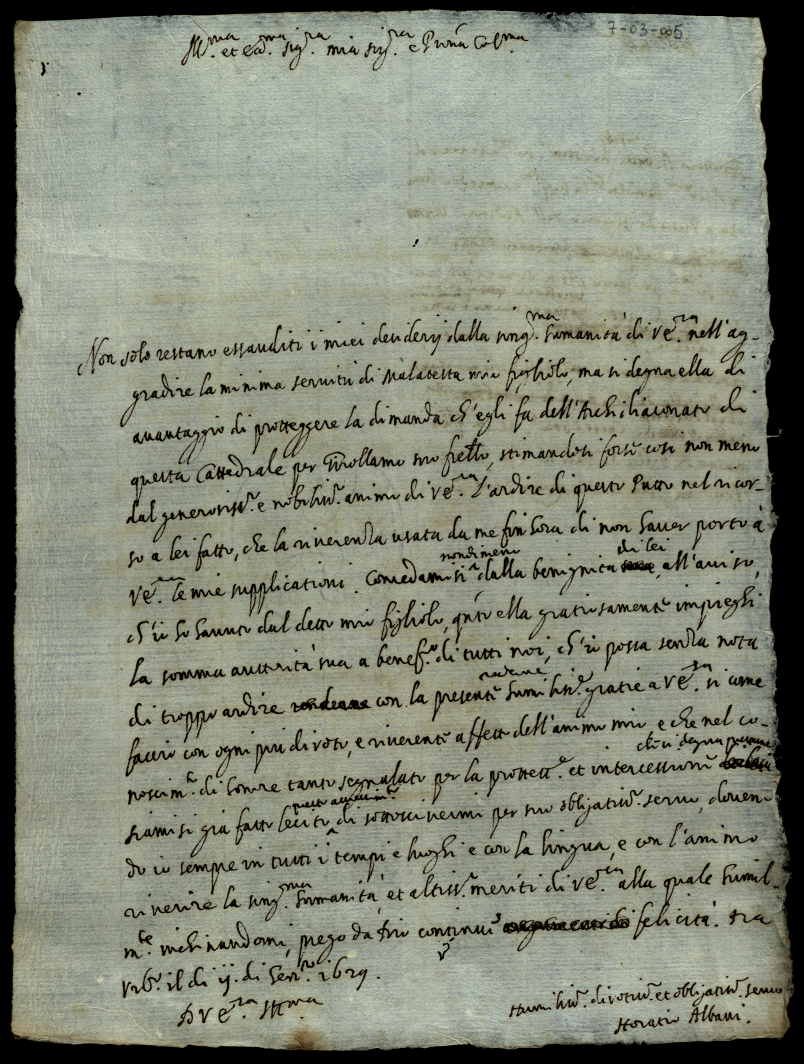 7-03-005
Ill.ma et ecc.ma sig.ra mia sig.ra e Pronā Col.ma
Non solo restano essauditi i miei desiderij dalla sing.ma humanità di V E.za nell'ag-
gradire la minima servitù di Malatesta mio figliolo, ma si degna ella di
avantaggio di proteggere la dimanda ch'egli fa dell'Archidiaconato di
questa Cattedrale per Girollamo suo frello, stimandosi forse così non meno
dal generosiss.o e nobiliss.o animo di V E.za l'ardire di questo Putto nel ricor-
so a lei fatto, che la riverenza usata da me fin hora di non haver porto à
V E.za le mie supplicationi. Concedamisi nondimeno dalla benignità di lei, all'aviso,
ch'io ho havuto dal detto mio figliolo, q.nto ella gratiosamente impieghi
la somma auttorità sua a benef.o di tutti noi, ch'io possa senza nota
di troppo ardire renderne con la presente humiliss.e gratie a V E.za si come
faccio con ogni più divoto, e riverente affetto dell'animo mio e che nel co-
noscim.to di honore tanto segnalato per la protett.e et intercessione che si degna
siami si già fatto lecito di sottoscrivermi per suo obligatiss.o servo, doven-
do io sempre in tutti i tempi e luoghi e con la lingua, e con l'animo
riverire la sing.ma humanità, et altiss.i meriti di V E.za alla quale humil-
m.te inchinandomi, prego da Dio continui felicità. Di
Urb.o il dì ij. di Gen.ro 1629.
D V E.za Ill.ma
Humiliss.o divotiss.o et obligatiss.o servo
Horatio Albani.